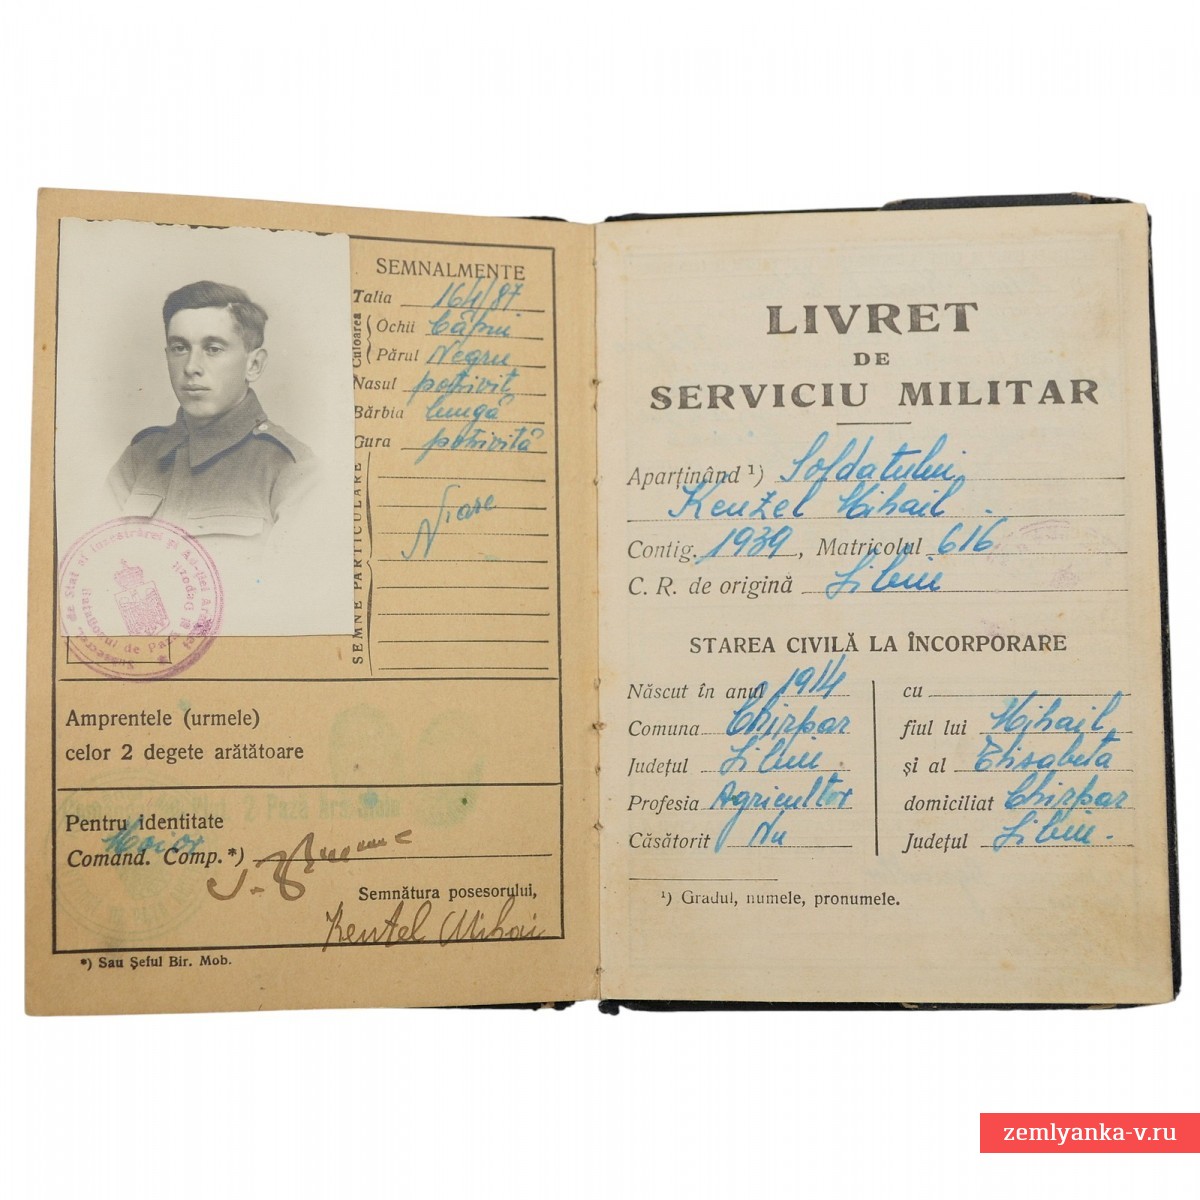 SEMNALMENTE
Talia 164/87
Culoarea
Ochii Căpui
Părul Negru
Nasul potrivit
Bărbia lungă
Gura potrivită
SEMNE PARTICULARE
N'are
Amprentele (urmele)
celor 2 degete arătătoare
Pentru identitate
Maior
Comand. Comp.*)
Semnătura posesorului,
Kentzel Mihai
*) Sau Șeful Bir. Mob.
Subsecret. de Stat al Inzestrărei și
Batalionul de Pază Depozit
LIVRET
DE
SERVICIU MILITAR
Aparținând ¹) Soldatului
Kenzel Mihail
Contig. 1939, Matricolul 616
C. R. de origină Sibiu
STAREA CIVILĂ LA ÎNCORPORARE
Născut în anul 1914
Comuna Chirpar
Județul Sibiu
Profesia Agricultor
Căsătorit Nu
cu
fiul lui Mihail
și al Elisabeta
domiciliat Chirpar
Județul Sibiu.
¹) Gradul, numele, pronumele.
zemlyanka-v.ru